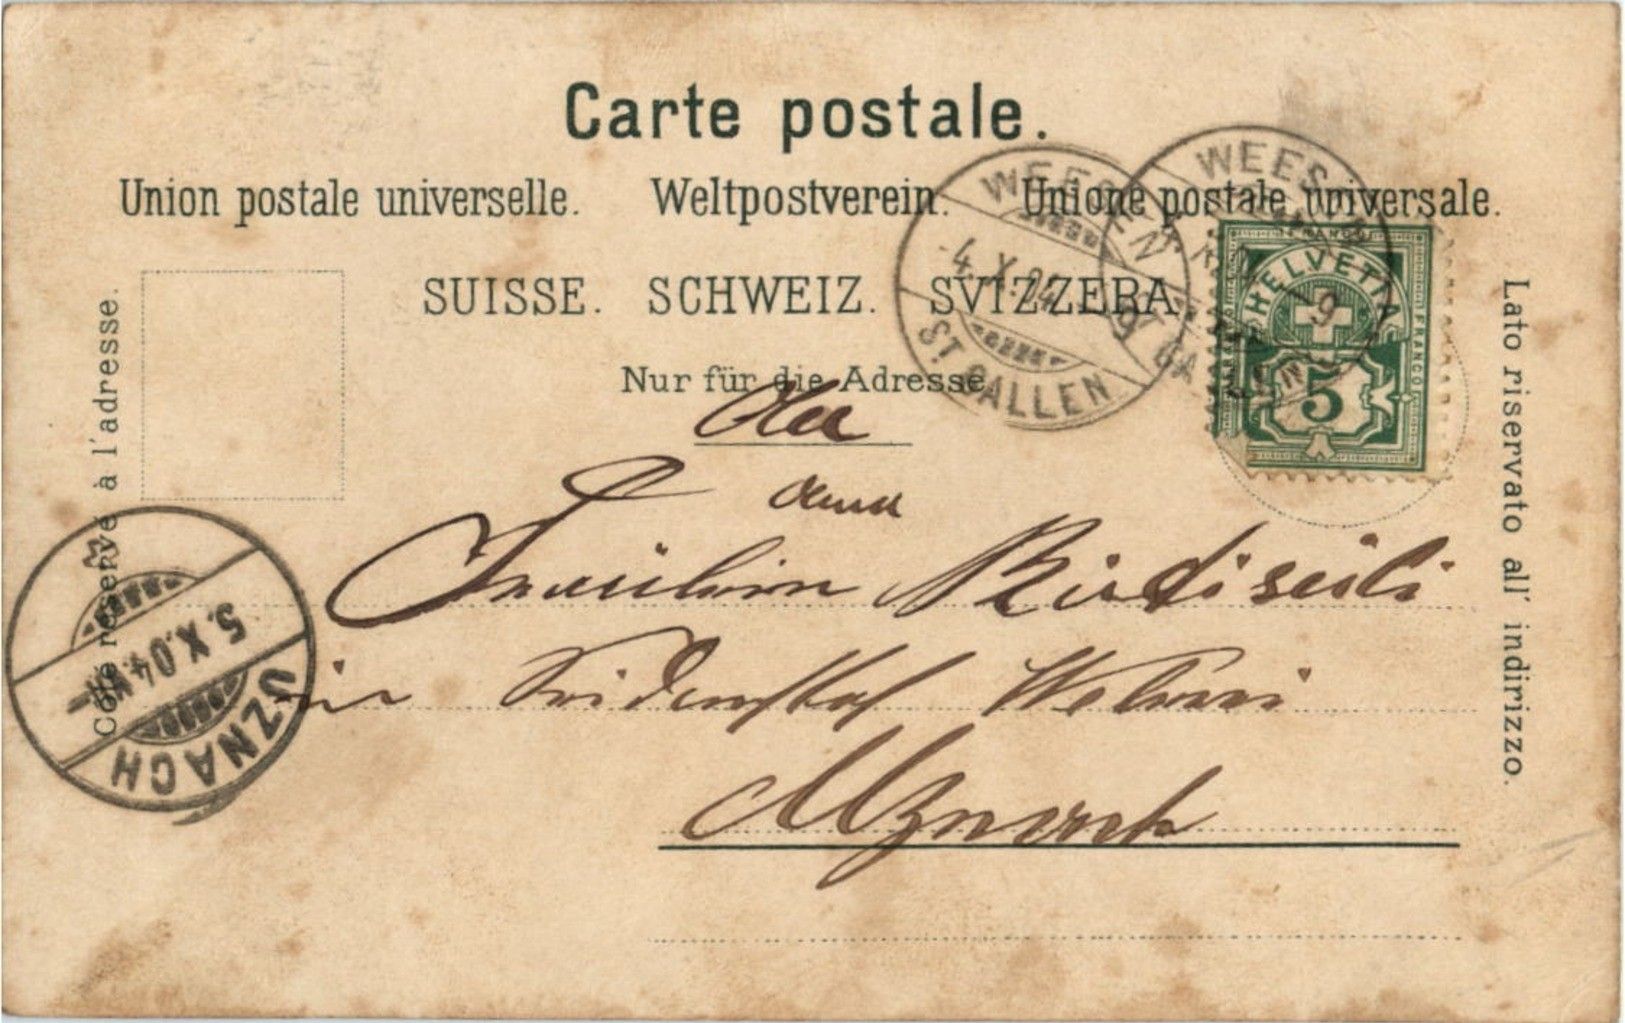 Carte postale.
Union postale universelle. Weltpostverein. Unione postale universale.
SUISSE. SCHWEIZ. SVIZZERA.
Nur für die Adresse
Côté réservé à l'adresse.
Lato riservato all' indirizzo.
WEESEN
-4. X. 04
ST. GALLEN
WEESEN
HELVETIA
FRANCO
5
5. X. 04
UZNACH
An
Fräulein
in
Uznach